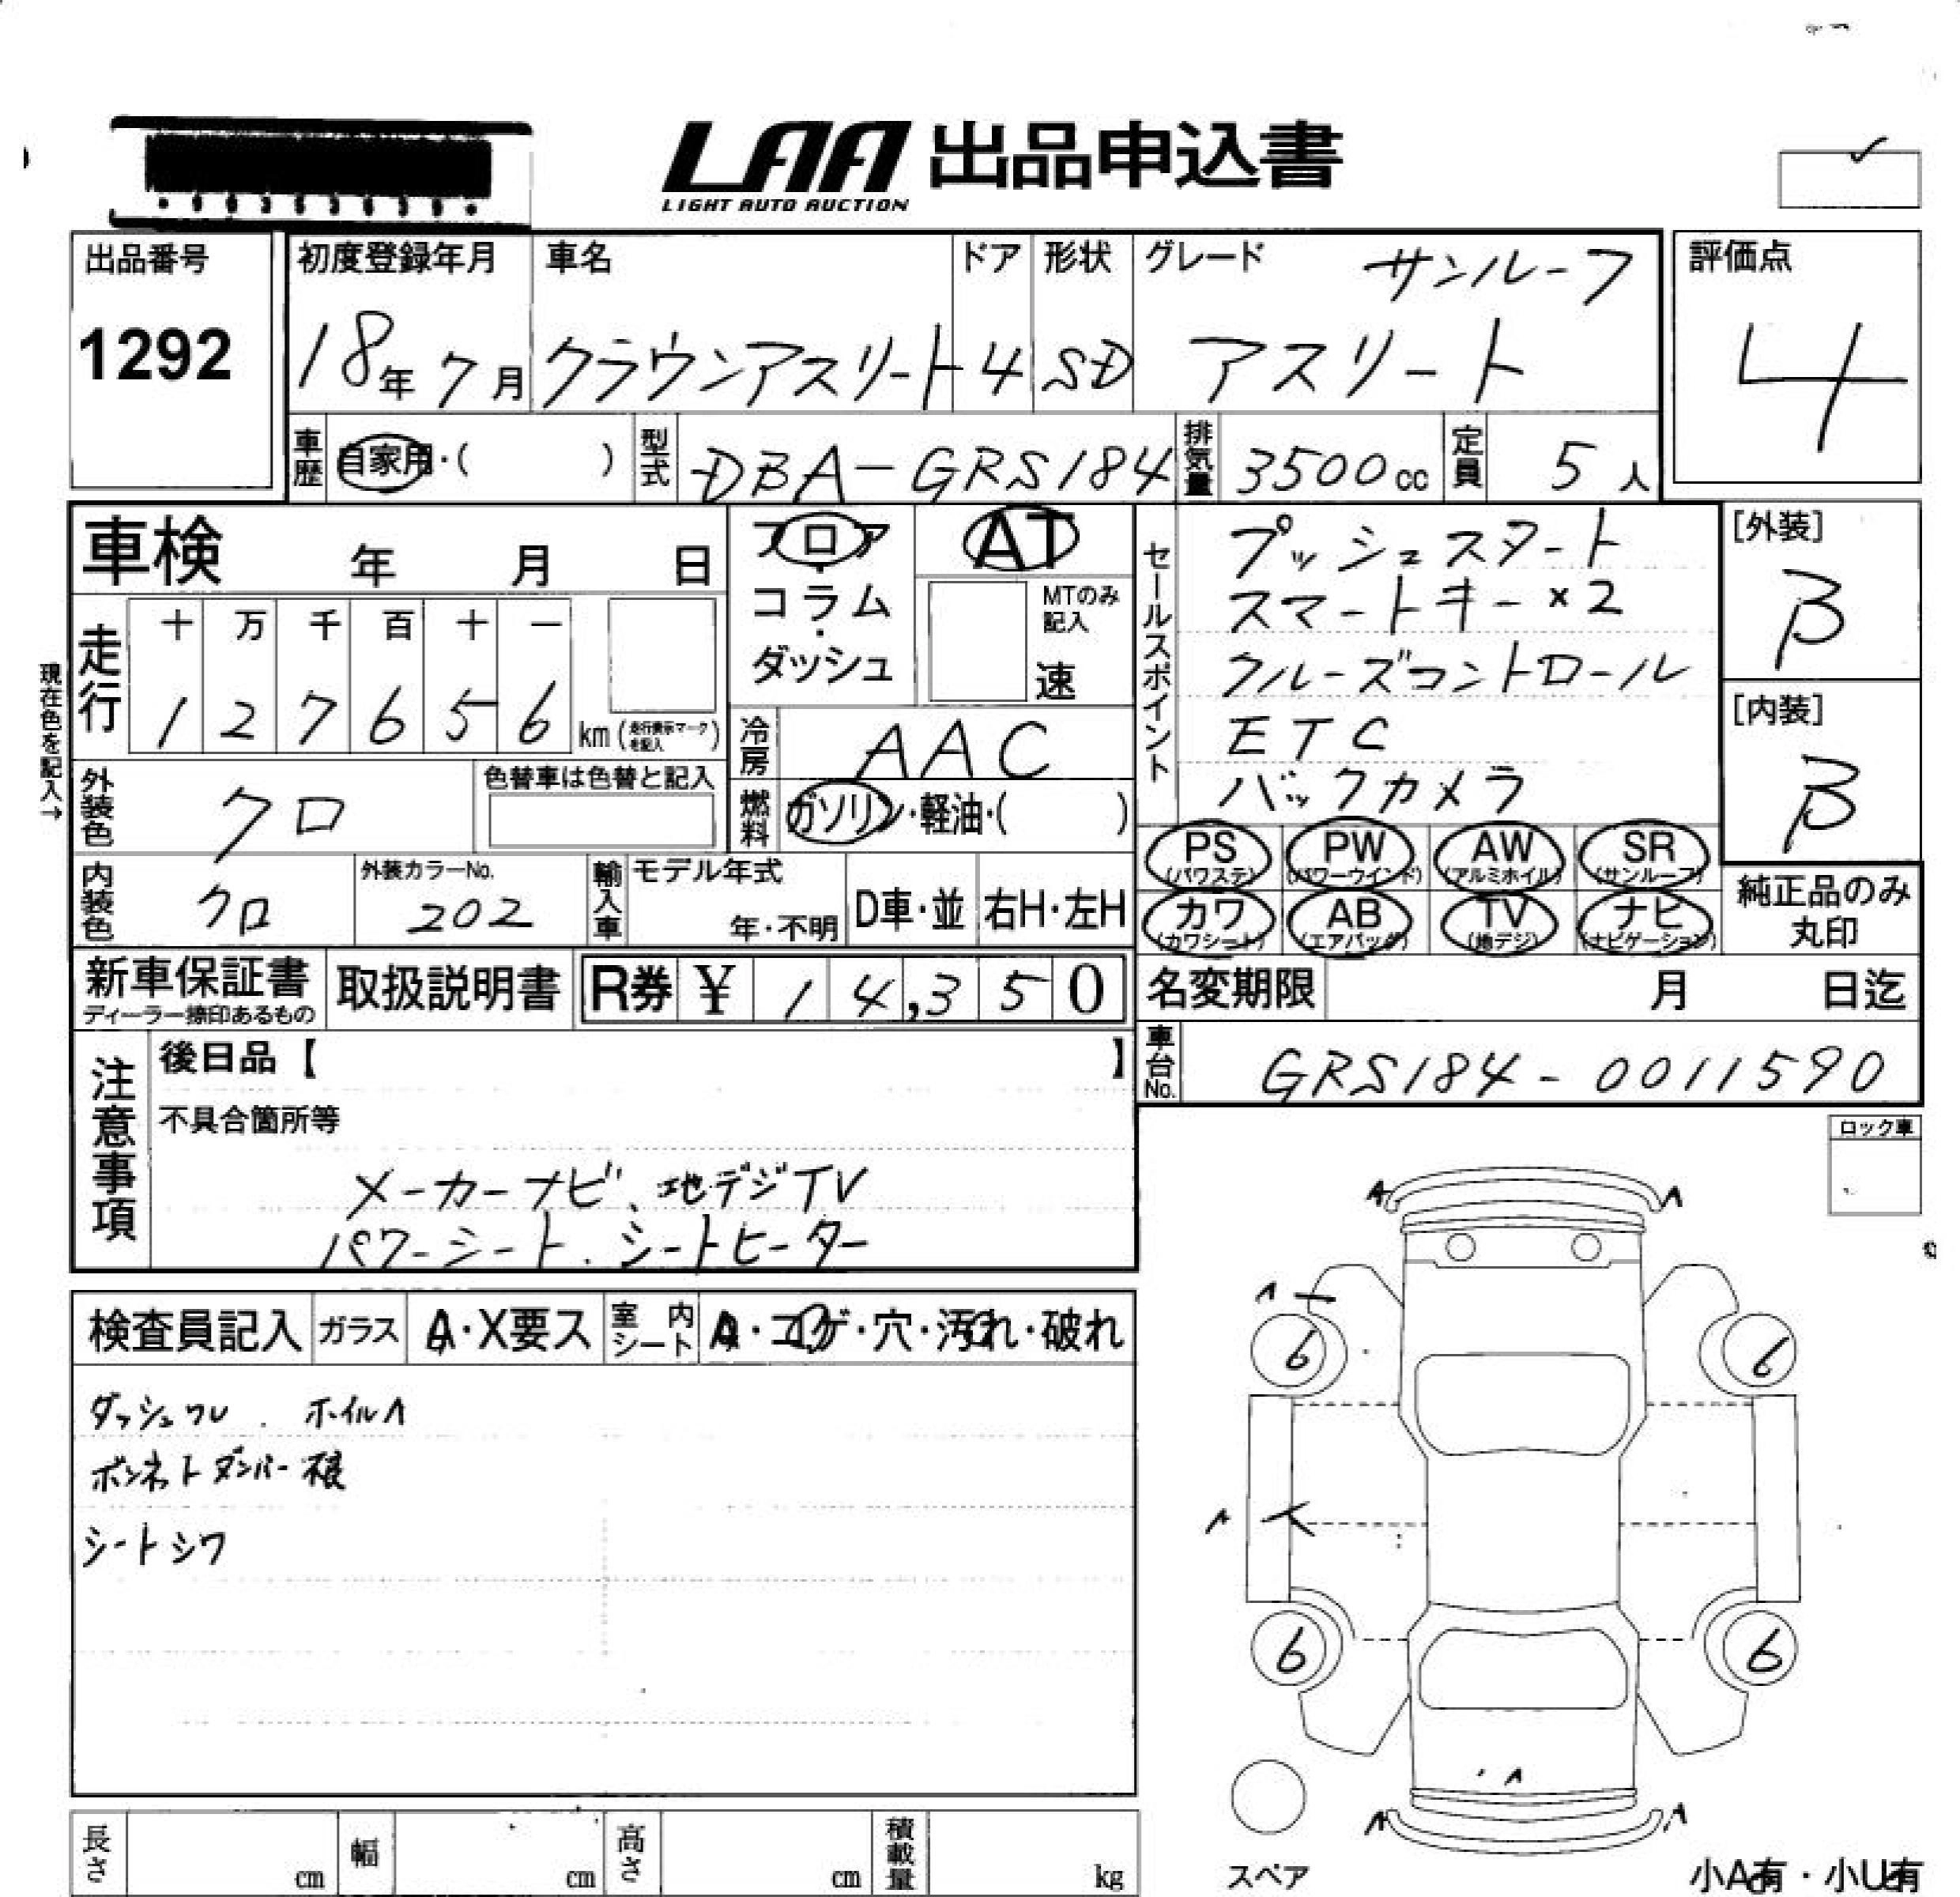 LAA 出品申込書
LIGHT AUTO AUCTION
出品番号
1292
初度登録年月
18年 7月
車名
クラウンアスリート
ドア
4
形状
SD
グレード
サンルーフ
アスリート
評価点
4
車歴
自家用・( )
型式
DBA-GRS184
排気量
3500cc
定員
5人
車検 年 月 日
フロア
・
コラム
・
ダッシュ
AT
MTのみ
記入
速
セールスポイント
プッシュスタート
スマートキー×2
クルーズコントロール
ETC
バックカメラ
[外装]
B
[内装]
B
現在色を記入→
走行
十 万 千 百 十 一
1 2 7 6 5 6 km(走行表示マークを記入)
冷房
AAC
外装色
クロ
色替車は色替と記入
燃料
ガソリン・軽油・( )
PS
(パワステ)
PW
(パワーウインド)
AW
(アルミホイル)
SR
(サンルーフ)
カワ
(カワシート)
AB
(エアバッグ)
TV
(地デジ)
ナビ
(ナビゲーション)
純正品のみ
丸印
内装色
クロ
外装カラーNo.
202
輸入車
モデル年式
年・不明
D車・並
右H・左H
新車保証書
ディーラー捺印あるもの
取扱説明書
R券 ¥ 14,350
名変期限 月 日迄
車台No.
GRS184-0011590
注意事項
後日品【 】
不具合箇所等
メーカーナビ、地デジTV
パワーシート、シートヒーター
ロック車
A A
検査員記入
ガラス
A・X要ス
室内シート
A・コゲ・穴・汚れ・破れ
ダッシュワレ . ホイルA
ボンネットダンパー不良
シートシワ
A
6 6
A
6 6
A
A A
スペア
小A有・小U有
長さ cm
幅 cm
高さ cm
積載量 kg